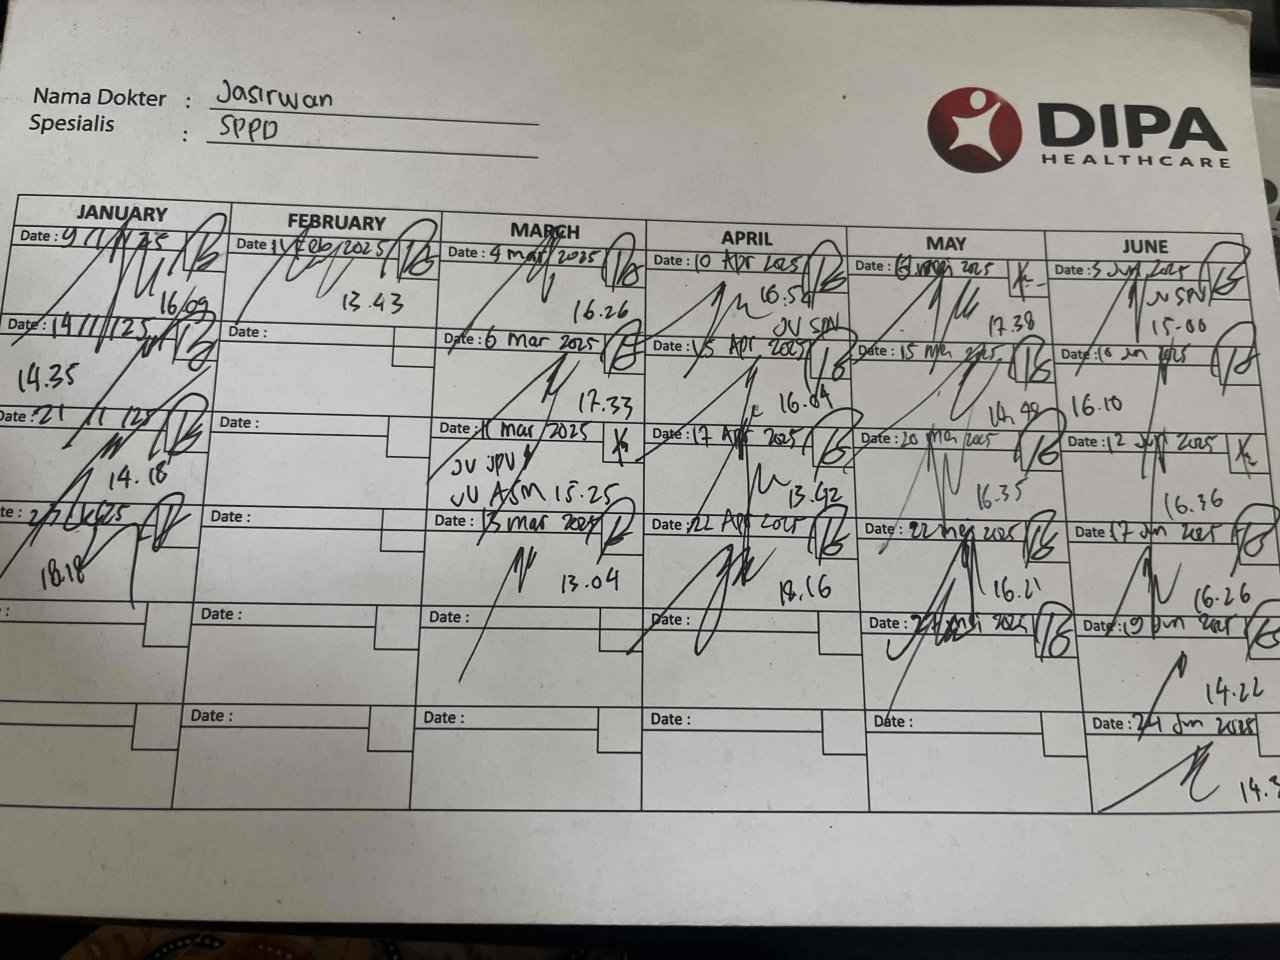 Nama Dokter : Jasirwan
Spesialis : SPPD
DIPA
HEALTHCARE
JANUARY
Date : 9/1/125
16.09
Date : 14/1/125
14.35
Date : 21 1 125
14.18
18.18
FEBRUARY
Date : 11 Feb 2025
13.43
Date :
Date :
Date :
Date :
Date :
MARCH
Date : 4 mar 2025
16.26
Date : 6 mar 2025
17.33
Date : 11 mar 2025
JV JPV
JV ASM 15.25
Date : 13 mar 2025
13.04
Date :
Date :
APRIL
Date : 10 Apr 2025
16.54
JV SPV
Date : 15 Apr 2025
16.04
Date : 17 Apr 2025
13.42
Date : 22 Apr 2025
18.16
Date :
Date :
MAY
Date : mei 2025
17.38
Date : 15 Mei 2025
Date : 20 Mei 2025
16.35
Date : 22 mei 2025
16.21
Date : mei 2025
Date :
JUNE
Date : 3 Jun 2025
JV SPV
15.00
Date : Jun 2025
16.10
Date : 12 Jun 2025
16.36
Date : 17 Jun 2025
16.26
Date : 19 Jun 2025
14.22
Date : 24 Jun 2025
14.3